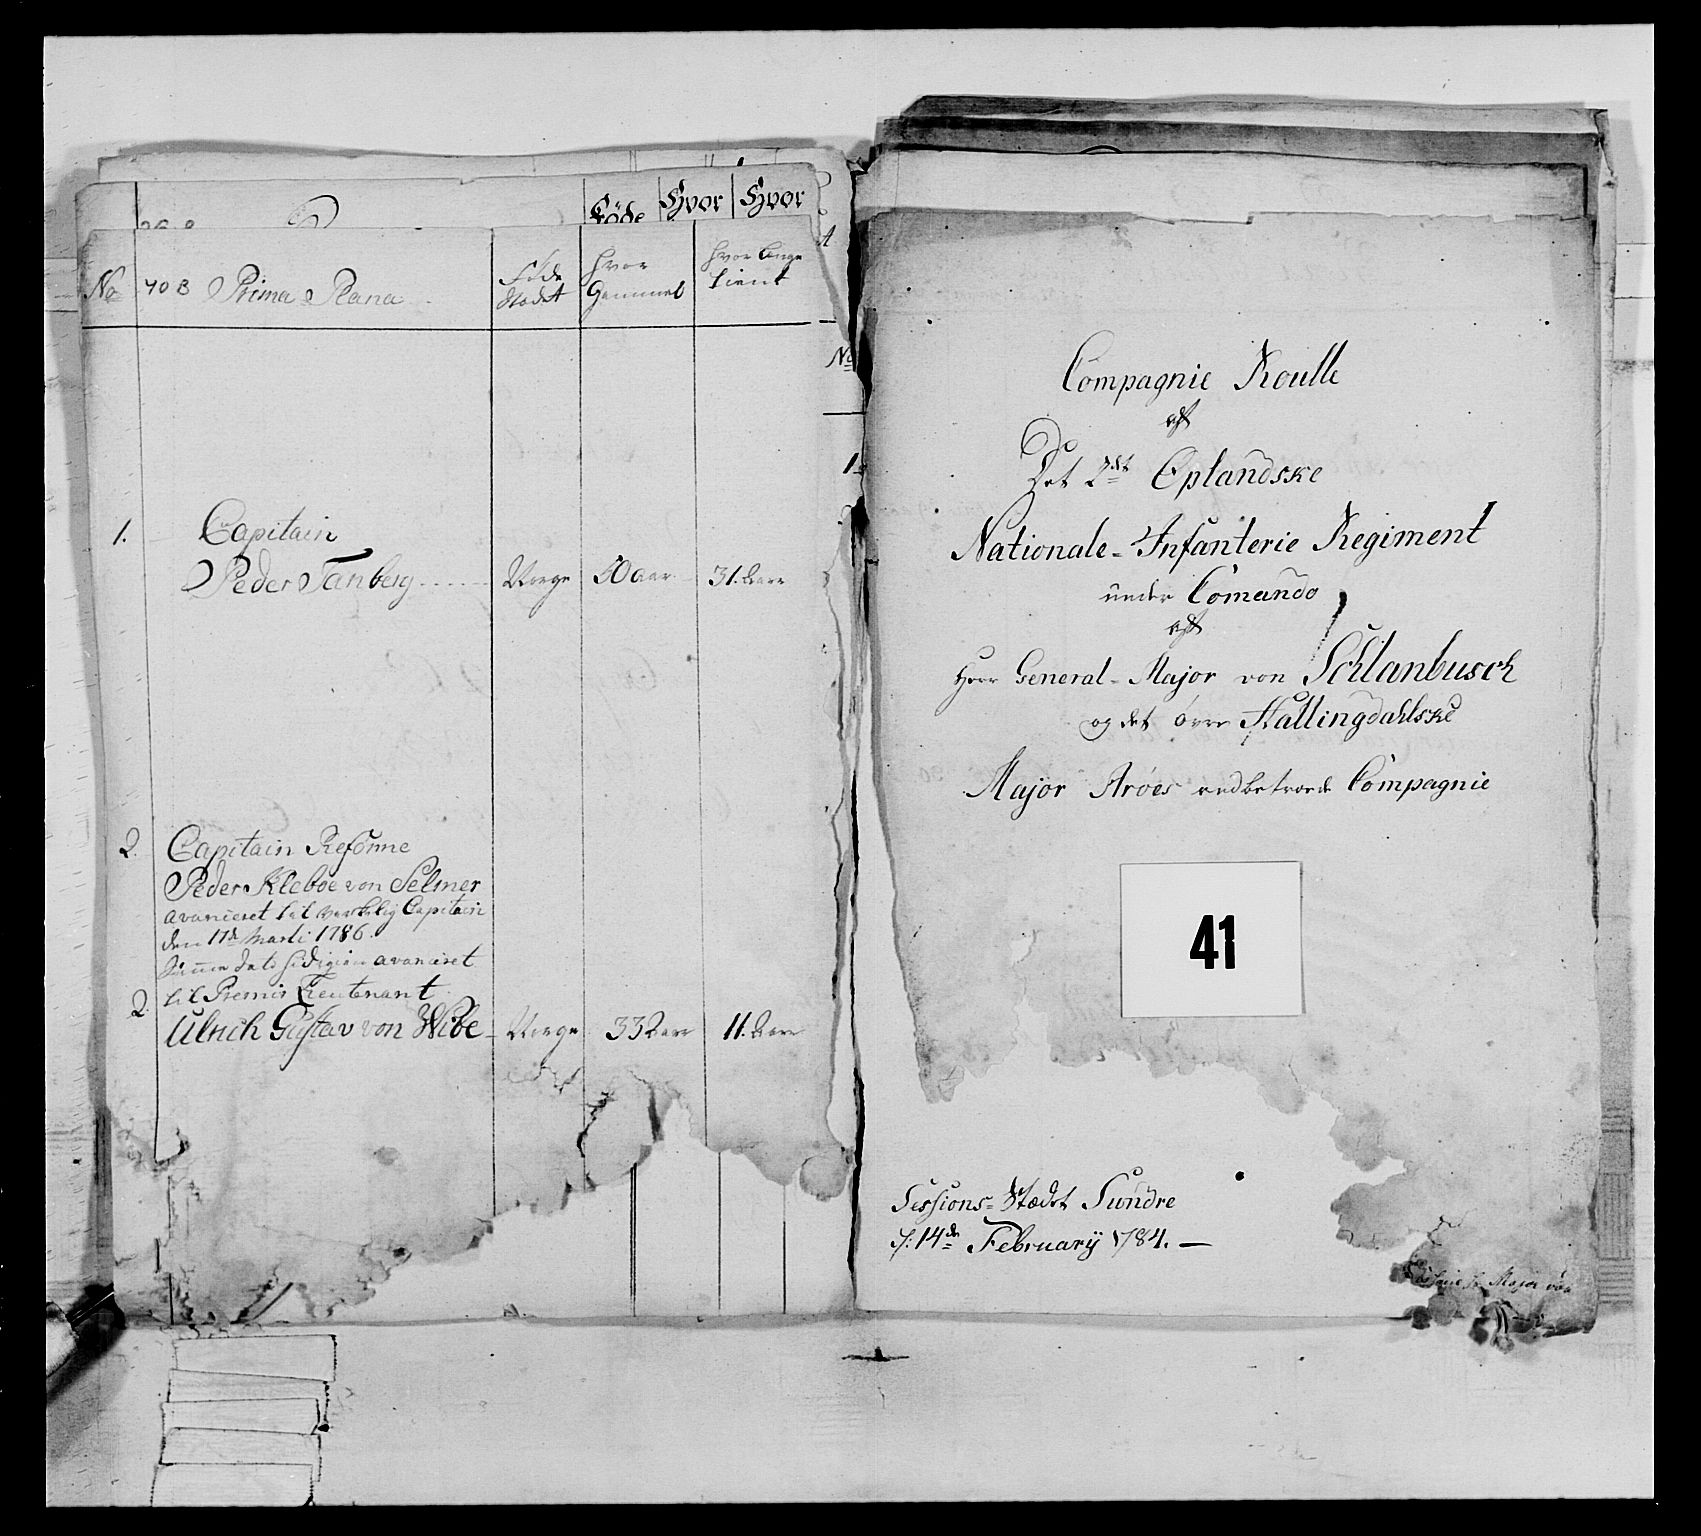 Føde Hvor Hvor
No 40 B Prima Plana Føde Stædet hvor Gammel hvor længe tient
1. Capitain
Peder Tanberg Norge 50 aar 31. Aar
2. Capitain Reforme
Peder Kleboe von Selmer
avanceret til virkelig Capitain
den 17de Marti 1786.
avanceret
til Premier Lieutenant
2. Ulrich Gustav von Wibe Norge 33 Aar 11. Aar
No
1
Compagnie Roulle
aff
Det 2det Oplandske
Nationale-Infanterie Regiment
under Comando
aff
Herr General-Major von Schlanbusch
og det øvre Hallingdahlske
Major Arøes vedbetroede Compagnie
41
Sessions-Stædet Sundre
d: 14de February 1784.
Major von